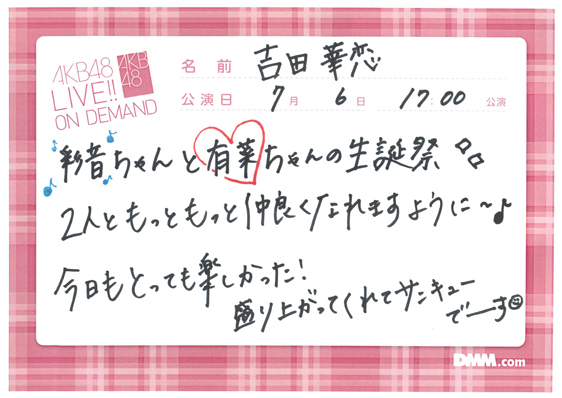 AKB48
LIVE!!
ON DEMAND
AKB
48
名前 吉田華恋
公演日 7月 6日 17:00 公演
彩音ちゃんと有菜ちゃんの生誕祭
2人ともっともっと仲良くなれますように〜♪
今日もとっても楽しかった!
盛り上がってくれてサンキュー
でーす
DMM.com